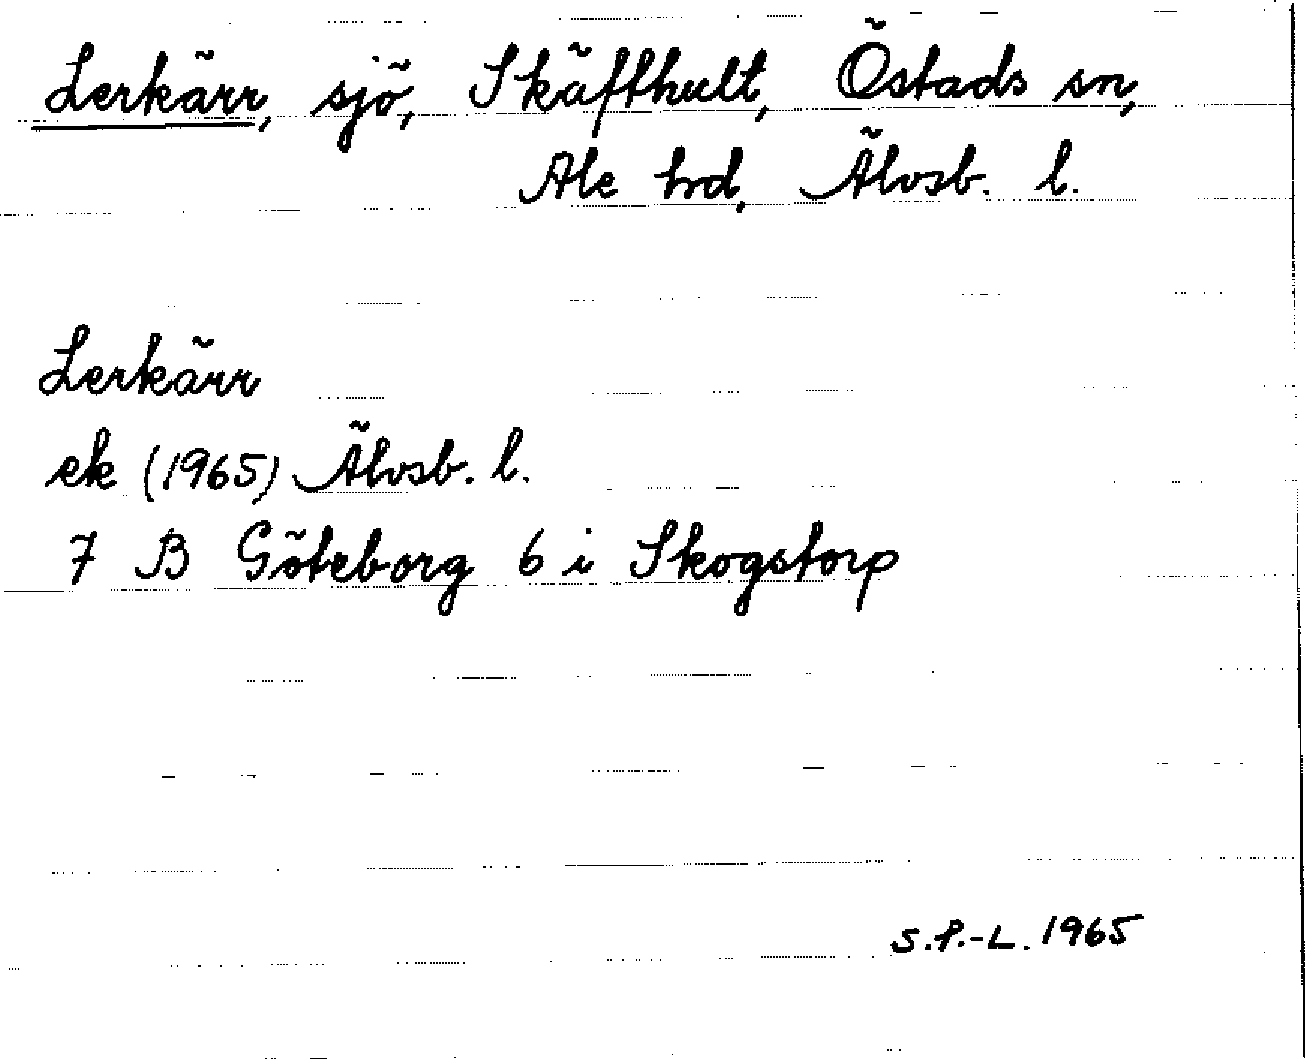 Lerkärr, sjö, Skäfthult, Östads sn,
Ale hrd, Älvsb. l.
Lerkärr
ek (1965) Älvsb. l.
7 B Göteborg 6 i Skogstorp
S.P.-L. 1965